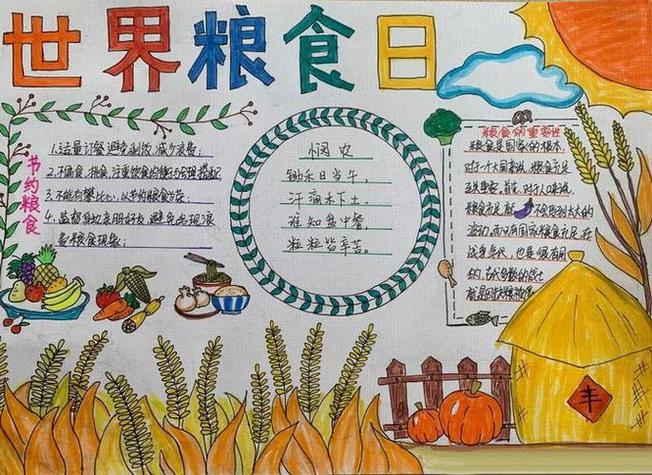 世界粮食日
节约粮食
1.适量订餐避免剩饭,减少浪费;
2.不偏食,挑食,注重饮食的
3.不能有攀比心,以节约粮食为荣;
4.监督身边亲朋好友,避免出现浪
费粮食现象;
悯农
锄禾日当午,
汗滴禾下土。
谁知盘中餐,
粒粒皆辛苦。
粮食的重要性
粮食是国家的根本,
对于一个大国来说,粮食充足
粮食充足就不会受到太大的
波动,而只有国家粮食充足,在
战争年代,也是很有用
的,古代多数的战士
丰